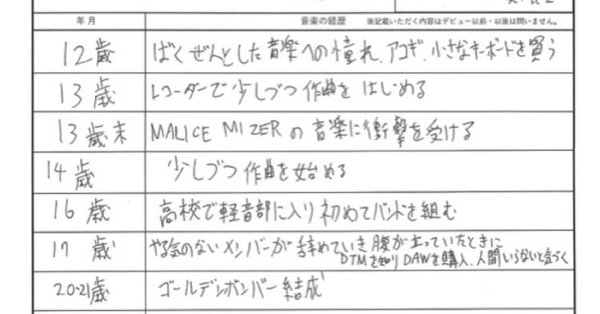 年月 音楽の経歴 ※記載いただく内容はデビュー以前・以後は問いません。
12歳 ばくぜんとした音楽への憧れ、アコギ、小さなキーボードを買う
13歳 レコーダーで少しづつ作曲をはじめる
13歳末 MALICE MIZERの音楽に衝撃を受ける
14歳 少しづつ作曲を始める
16歳 高校で軽音部に入り初めてバンドを組む
17歳 やる気のないメンバーが辞めていき腹が立っていたときに
DTMを知りDAWを購入、人間いらないと気づく
20-21歳 ゴールデンボンバー結成